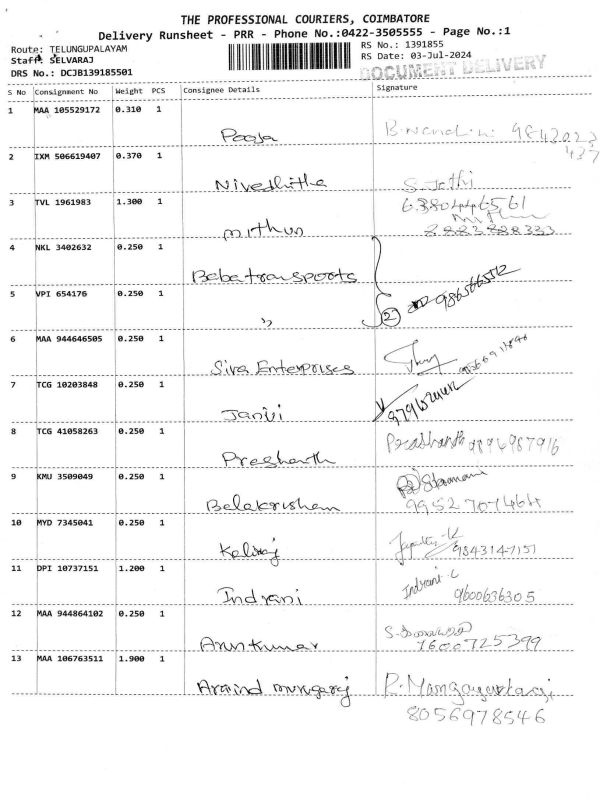 THE PROFESSIONAL COURIERS, COIMBATORE
Delivery Runsheet - PRR - Phone No.:0422-3505555 - Page No.:1
Route: TELUNGUPALAYAM
RS No.: 1391855
Staff: SELVARAJ
RS Date: 03-Jul-2024
DRS No.: DCJB139185501
DOCUMENT DELIVERY
S No Consignment No Weight PCS Consignee Details Signature
1 MAA 105529172 0.310 1
Pooja
2 IXM 506619407 0.370 1
Nivedhitha S. Jothi
3 TVL 1961983 1.300 1
Mithun
8883888333
4 NKL 3402632 0.250 1
Baba transports
5 VPI 654176 0.250 1
" 2
6 MAA 944646505 0.250 1
Siva Enterprises
7 TCG 10203848 0.250 1
Janvi
8 TCG 41058263 0.250 1
Prashanth Prashanth 9894987916
9 KMU 3509049 0.250 1
Balakrishnan 9952707464
10 MYD 7345041 0.250 1
Kaliraj 9843147151
11 DPI 10737151 1.200 1
Indrani Indrani C 9600636305
12 MAA 944864102 0.250 1
Arunkumar 7600725399
13 MAA 106763511 1.900 1
Aravind murugaraj
8056978546